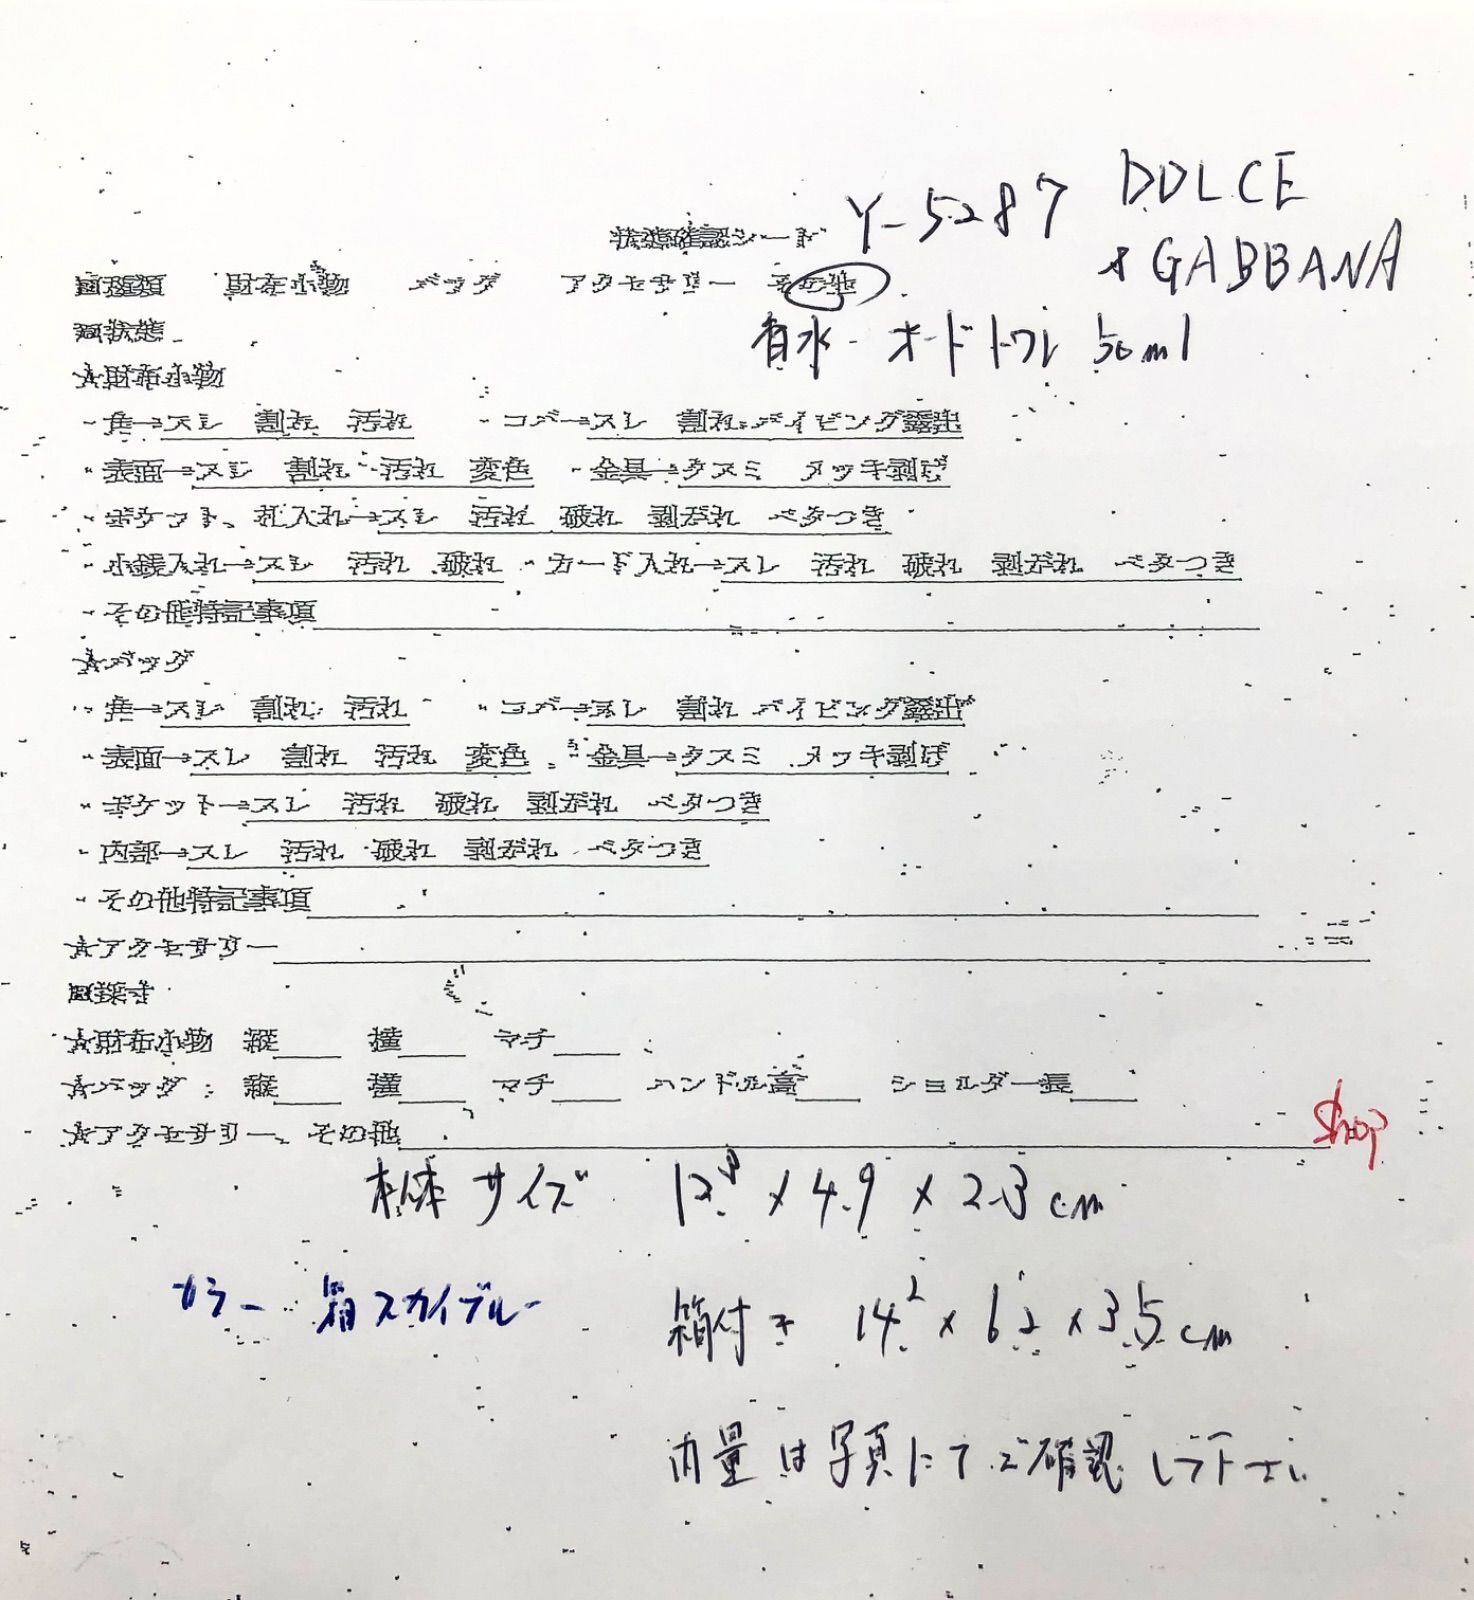 Y-5287 DOLCE
& GABBANA
状態確認シート
■種類 財布小物 バッグ アクセサリー その他
香水 オードトワレ 50ml
■状態
☆財布小物
・角→スレ 割れ 汚れ ・コバ→スレ 割れ パイピング露出
・表面→スレ 割れ 汚れ 変色 ・金具→クスミ メッキ剥げ
・ポケット、札入れ→スレ 汚れ 破れ 剥がれ ベタつき
・小銭入れ→スレ 汚れ 破れ ・カード入れ→スレ 汚れ 破れ 剥がれ ベタつき
・その他特記事項
☆バッグ
・角→スレ 割れ 汚れ ・コバ→スレ 割れ パイピング露出
・表面→スレ 割れ 汚れ 変色 ・金具→クスミ メッキ剥げ
・ポケット→スレ 汚れ 破れ 剥がれ ベタつき
・内部→スレ 汚れ 破れ 剥がれ ベタつき
・その他特記事項
☆アクセサリー
■採寸
☆財布小物 縦 横 マチ
☆バッグ 縦 横 マチ ハンドル高 ショルダー長
☆アクセサリー、その他
Shop
本体サイズ 12.8 × 4.9 × 2.3 cm
カラー 箱スカイブルー
箱付き 14.2 × 6.2 × 3.5 cm
内量は写真にてご確認して下さい